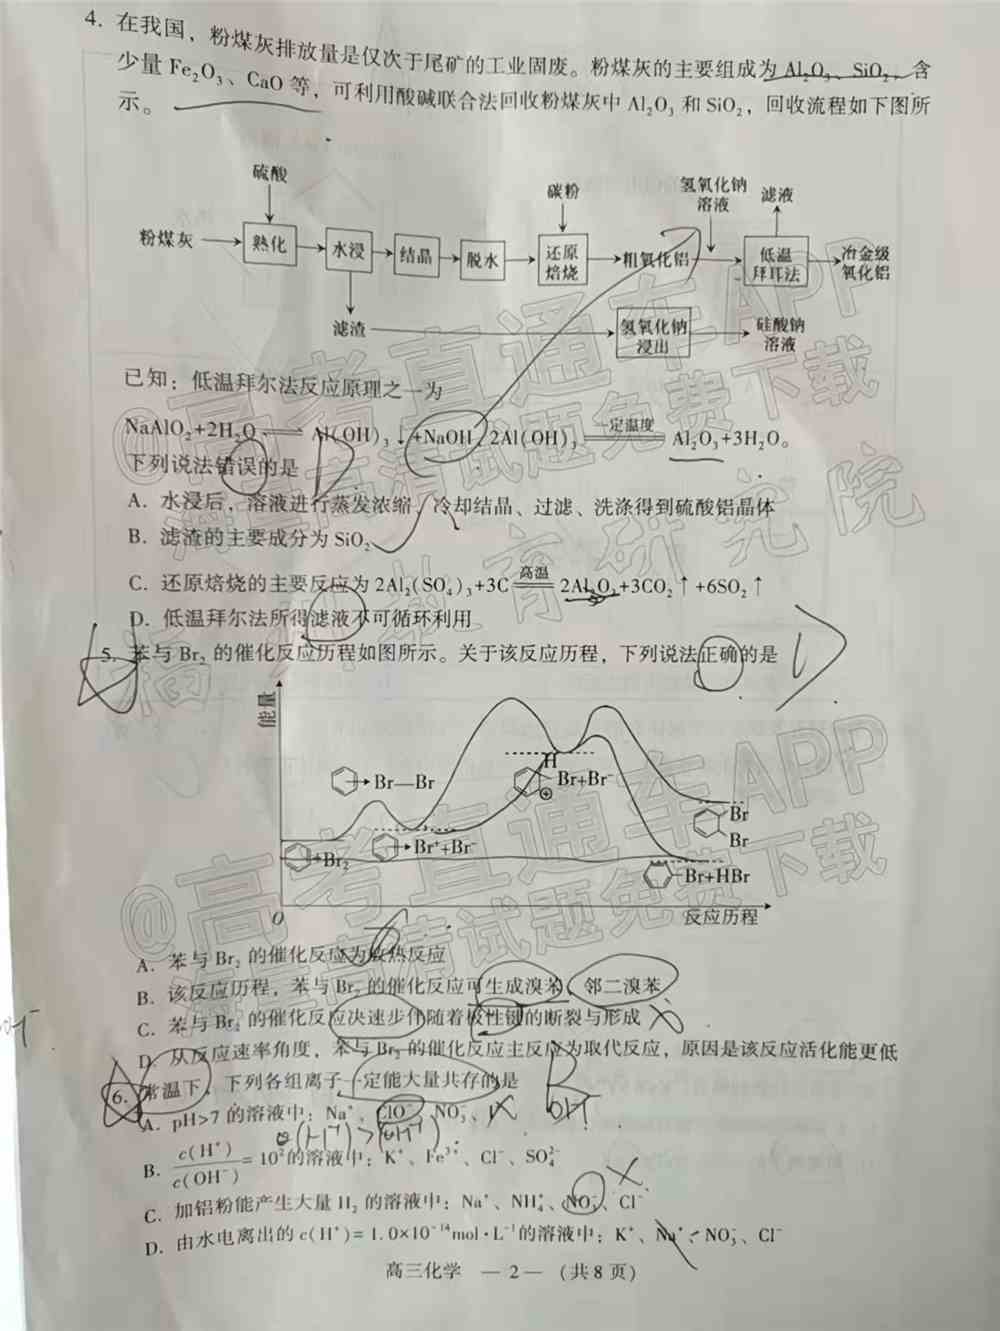 4. 在我国，粉煤灰排放量是仅次于尾矿的工业固废。粉煤灰的主要组成为 Al₂O₃、SiO₂，含
少量 Fe₂O₃、CaO 等，可利用酸碱联合法回收粉煤灰中 Al₂O₃ 和 SiO₂，回收流程如下图所
示。
硫酸 碳粉 氢氧化钠溶液 滤液
粉煤灰 熟化 水浸 结晶 脱水 还原焙烧 粗氧化铝 低温拜耳法 冶金级氧化铝
滤渣 氢氧化钠浸出 硅酸钠溶液
已知：低温拜尔法反应原理之一为
NaAlO₂+2H₂O⇌Al(OH)₃↓+NaOH, 2Al(OH)₃ 一定温度 Al₂O₃+3H₂O。
下列说法错误的是
A. 水浸后，溶液进行蒸发浓缩、冷却结晶、过滤、洗涤得到硫酸铝晶体
B. 滤渣的主要成分为 SiO₂
C. 还原焙烧的主要反应为 2Al₂(SO₄)₃+3C 高温 2Al₂O₃+3CO₂↑+6SO₂↑
D. 低温拜尔法所得滤液不可循环利用
5. 苯与 Br₂ 的催化反应历程如图所示。关于该反应历程，下列说法正确的是
能量
H
Br—Br Br+Br⁻
Br
+Br₂ Br⁺+Br⁻ Br
Br+HBr
O 反应历程
A. 苯与 Br₂ 的催化反应为放热反应
B. 该反应历程，苯与 Br₂ 的催化反应可生成溴苯、邻二溴苯
C. 苯与 Br₂ 的催化反应决速步伴随着极性键的断裂与形成
D. 从反应速率角度，苯与 Br₂ 的催化反应主反应为取代反应，原因是该反应活化能更低
6. 常温下，下列各组离子一定能大量共存的是
A. pH>7 的溶液中：Na⁺、ClO⁻、NO₃⁻、
B. c(H⁺)/c(OH⁻)=10²的溶液中：K⁺、Fe³⁺、Cl⁻、SO₄²⁻
C. 加铝粉能产生大量 H₂ 的溶液中：Na⁺、NH₄⁺、NO₃⁻、Cl⁻
D. 由水电离出的 c(H⁺)=1.0×10⁻¹⁴mol·L⁻¹的溶液中：K⁺、Na⁺、NO₃⁻、Cl⁻
高三化学 — 2 — （共 8 页）
@高考直通车APP
海量高清试题免费下载
@高考直通车APP
海量高清试题免费下载
教育研究院